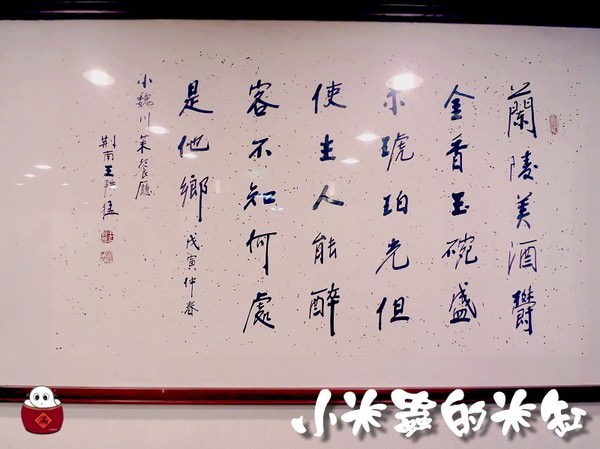 蘭陵美酒鬱
金香玉碗盛
来琥珀光但
使主人能醉
客不知何處
是他鄉 戊寅仲春
小魏川菜餐廳
荆南王猛
小米蟲的米缸